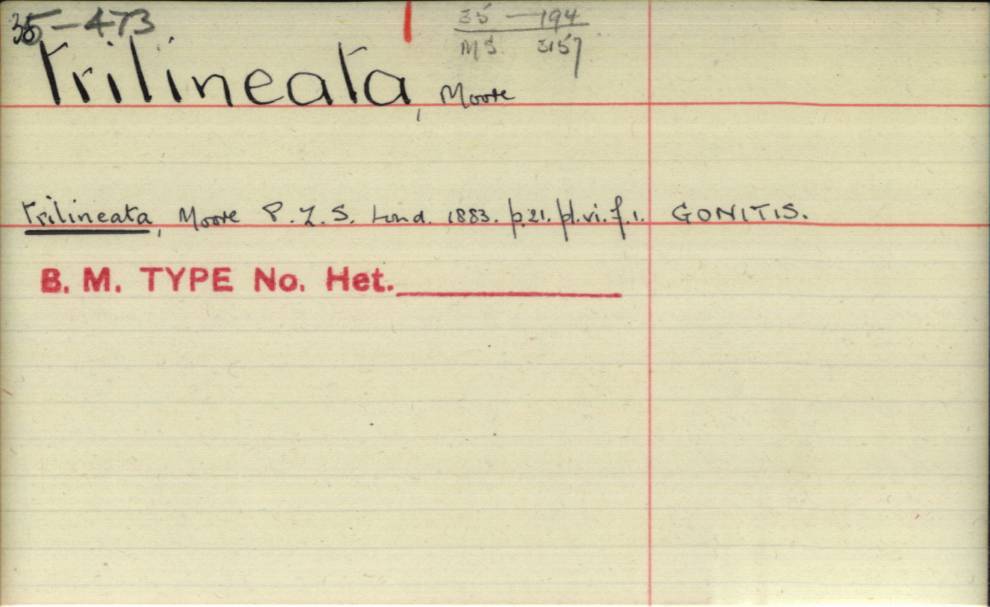 35-473
35 — 194
MS 3157
trilineata, Moore
trilineata, Moore P.Z.S. Lond. 1883. p.21. pl.vi.f.1. GONITIS.
B. M. TYPE No. Het.